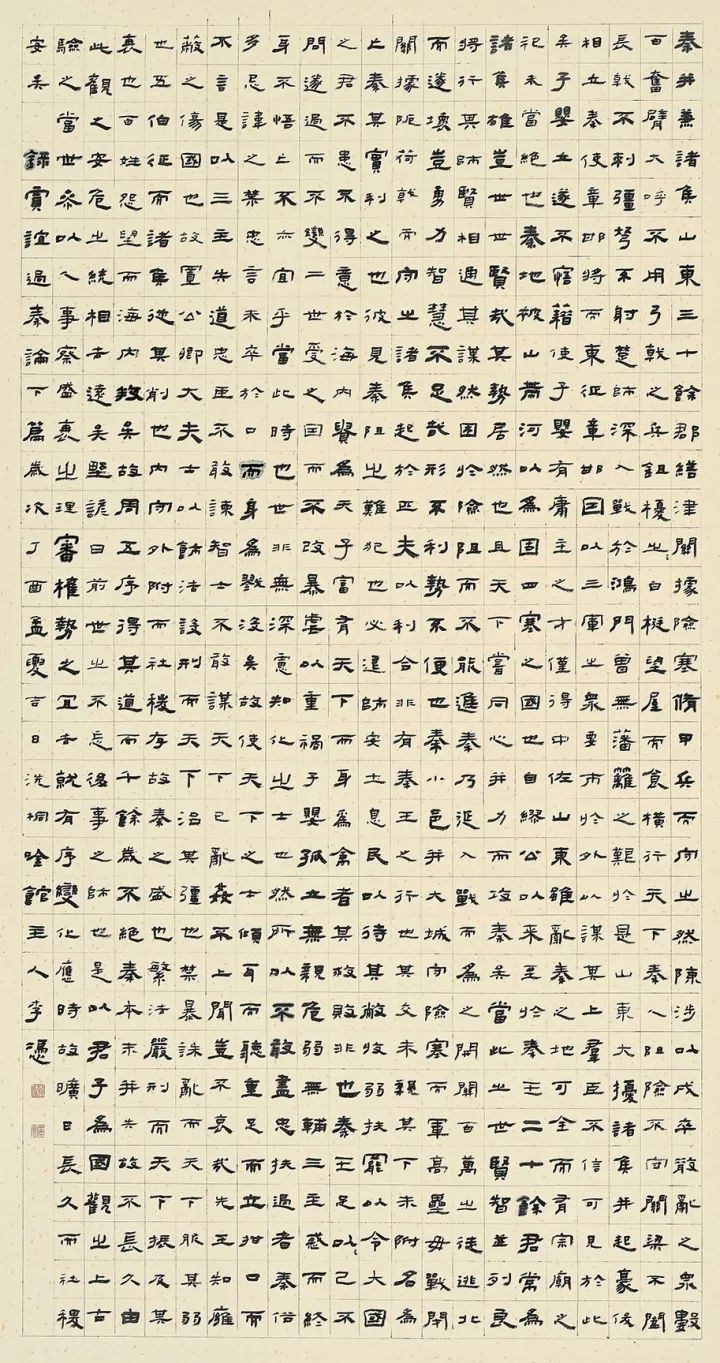 秦并兼諸侯山東三十餘郡繕津關據險塞脩甲兵而守之然陳涉以戍卒散亂之衆數
百奮臂大呼不用弓戟之兵鉏櫌之白梃望屋而食橫行天下秦人阻險不守關梁不闔
長戟不刺彊弩不射楚師深入戰於鴻門曾無藩籬之艱於是山東大擾諸侯并起豪俊
相立秦使章邯將而東征章邯因以三軍之衆要市於外以謀其上羣臣不信可見於此
矣子嬰立遂不寤藉使子嬰有庸主之才僅得中佐山東雖亂秦之地可全而有宗廟之
祀未當絕也秦地被山帶河以為固四塞之國也自繆公以來至於秦王二十餘君常為
諸侯雄豈世世賢哉其勢居然也且天下嘗同心并力而攻秦矣當此之世賢智並列良
將行其師賢相通其謀然困於險阻而不能進秦乃延入戰而為之開關百萬之徒逃北
而遂壞豈勇力智慧不足哉形不利勢不便也秦小邑并大城守險塞而軍高壘毋戰閉
關據阨荷戟而守之諸侯起於匹夫以利合非有素王之行也其交未親其下未附名為
上秦其實利之也彼見秦阻之難犯也必退師安土息民以待其敝收弱扶罷以令大國
之君不患不得意於海內賢為天子富有天下而身為禽者其救敗非也秦王足以己不
問遂過而不變二世受之因而不改暴虐以重禍子嬰孤立無親危弱無輔三主惑而終
身不悟亡不亦宜乎當此時也世非無深意知化之士也然所以不敢盡忠扶過者秦俗
多忌諱之禁忠言未卒於口而身為戮沒矣故使天下之士傾耳而聽重足而立拑口而
不言是以三主失道忠臣不敢諫智士不敢謀天下已亂姦不上聞豈不哀哉先王知雍
蔽之傷國也故置公卿大夫士以飾法設刑而天下治其彊也禁暴誅亂而天下服其弱
也五伯征而諸侯從其削也內守外附而社稷存故秦之盛也繁法嚴刑而天下振及其
衰也百姓怨望而海內叛矣故周五序得其道而千餘歲不絕秦本末并失故不長久由
此觀之安危之統相去遠矣野諺曰前世之不忘後事之師也是以君子為國觀之上古
驗之當世參以人事察盛衰之理審權勢之宜去就有序變化應時故曠日長久而社稷
安矣 錄賈誼過秦論下篇歲次丁酉孟夏吉日洗桐吟館主人李憑